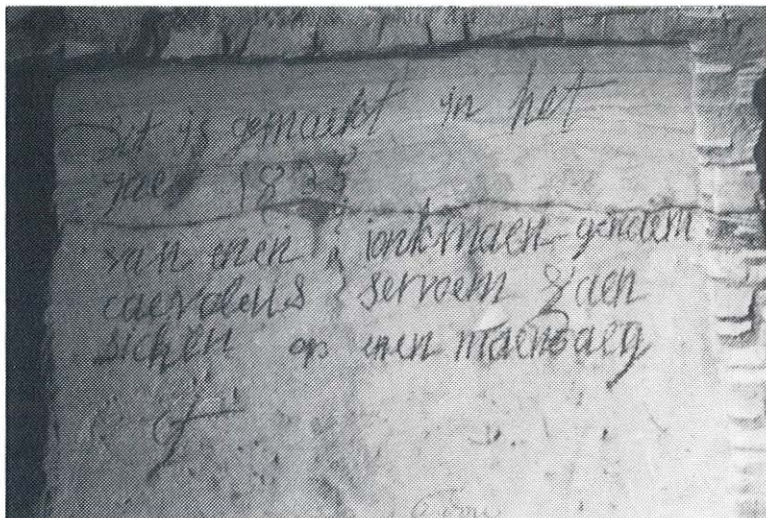 Dit is gemaekt in het
jaer 1825
van enen ionkmaen genaemt
caeroleus servaem van
sichen op enen maendaeg